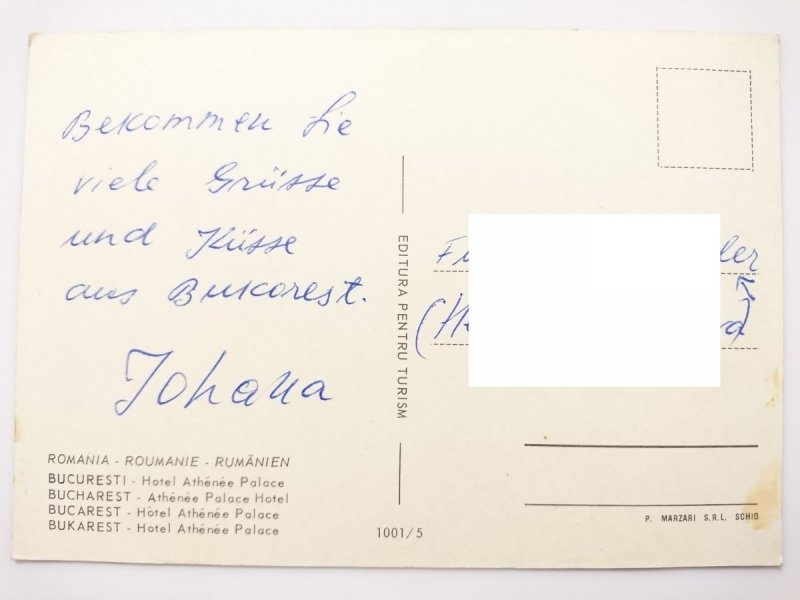 Bekommen Sie
viele Grüsse
und Küsse
aus Bukorest.
Johana
ROMANIA - ROUMANIE - RUMÄNIEN
BUCURESTI - Hotel Athénée Palace
BUCHAREST - Athénée Palace Hotel
BUCAREST - Hôtel Athénée Palace
BUKAREST - Hotel Athénée Palace
1001/5
EDITURA PENTRU TURISM
P. MARZARI S.R.L. SCHIO